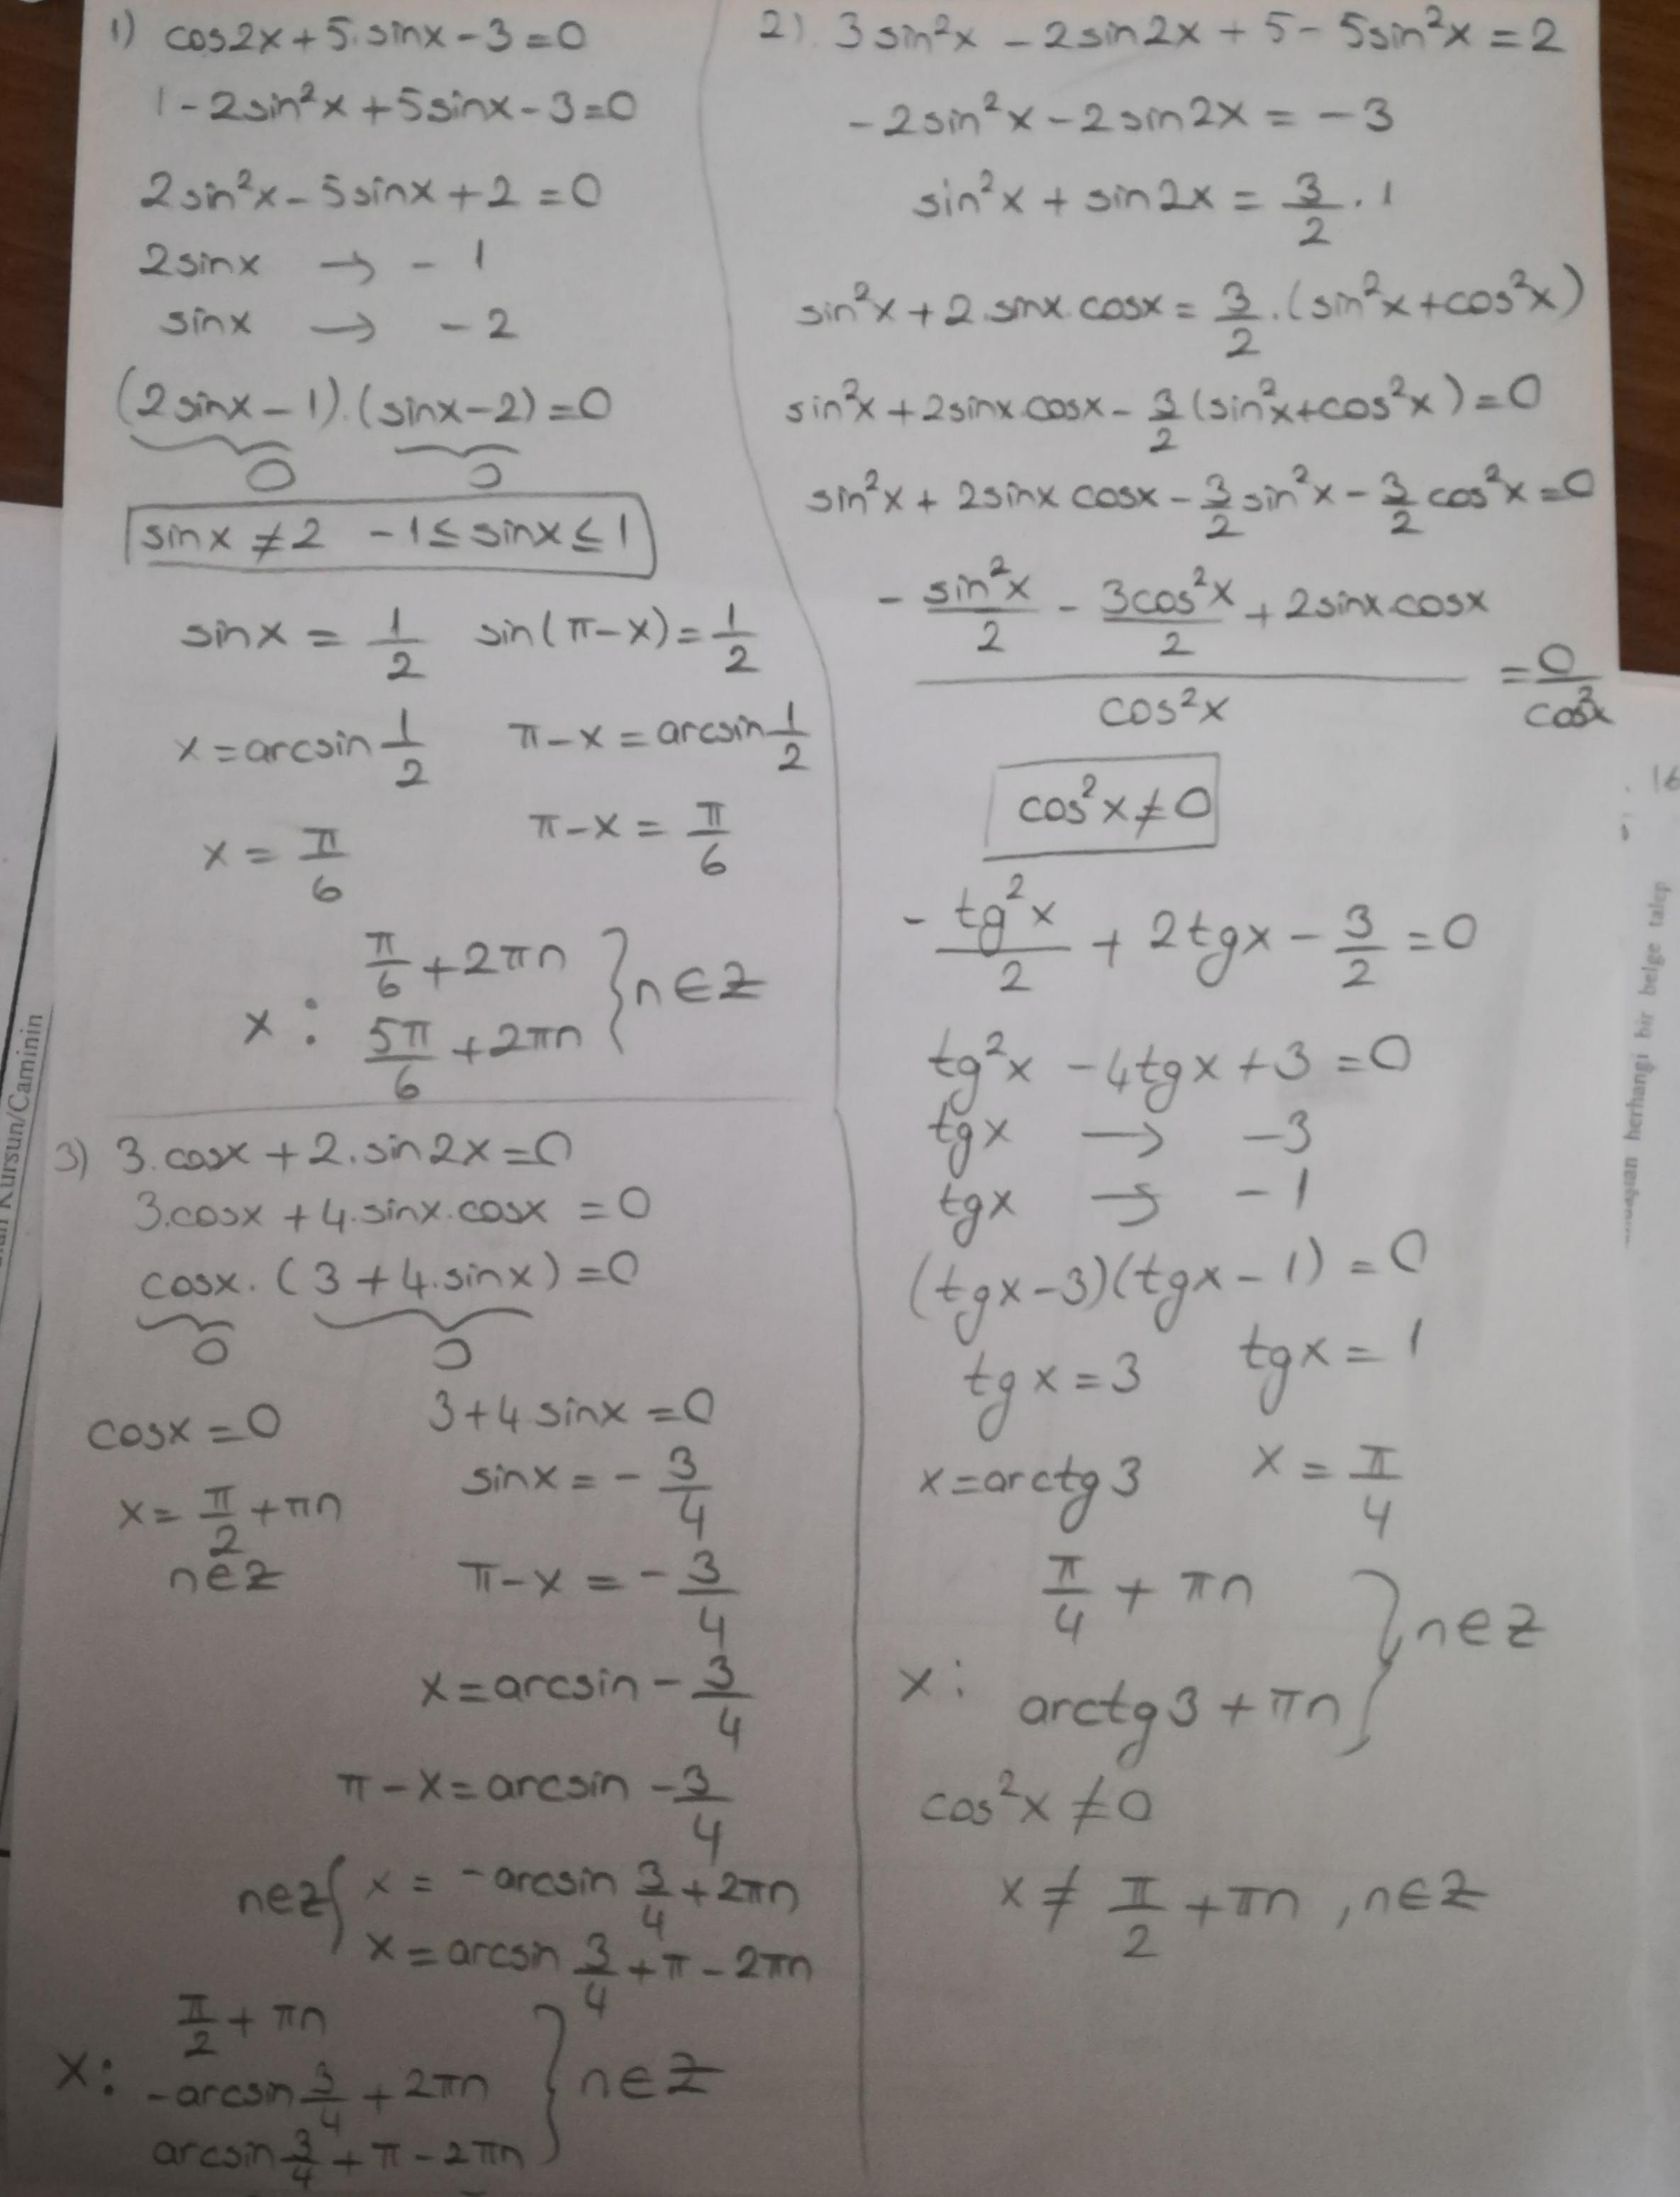 1) cos2x+5.sinx-3=0
1-2sin²x+5sinx-3=0
2sin²x-5sinx+2=0
2sinx → -1
sinx → -2
(2sinx-1).(sinx-2)=0
0 0
sinx≠2 -1≤sinx≤1
sinx=1/2 sin(π-x)=1/2
x=arcsin1/2 π-x=arcsin1/2
x=π/6 π-x=π/6
x: π/6+2πn
5π/6+2πn } n∈Z
3) 3.cosx+2.sin2x=0
3.cosx+4.sinx.cosx=0
cosx.(3+4.sinx)=0
0 0
cosx=0 3+4.sinx=0
x=π/2+πn sinx=-3/4
n∈Z π-x=-3/4
x=arcsin-3/4
π-x=arcsin-3/4
n∈Z { x=-arcsin3/4+2πn
x=arcsin3/4+π-2πn
x: π/2+πn
-arcsin3/4+2πn
arcsin3/4+π-2πn } n∈Z
2). 3sin²x-2sin2x+5-5sin²x=2
-2sin²x-2sin2x=-3
sin²x+sin2x=3/2.1
sin²x+2.sinx.cosx=3/2.(sin²x+cos²x)
sin²x+2sinx.cosx-3/2(sin²x+cos²x)=0
sin²x+2sinx cosx-3/2sin²x-3/2cos²x=0
(-sin²x/2-3cos²x/2+2sinx.cosx)/cos²x=0/cos²x
cos²x≠0
-tg²x/2+2tgx-3/2=0
tg²x-4tgx+3=0
tgx → -3
tgx → -1
(tgx-3)(tgx-1)=0
tgx=3 tgx=1
x=arctg3 x=π/4
x: π/4+πn
arctg3+πn } n∈Z
cos²x≠0
x≠π/2+πn, n∈Z
Kursun/Caminin
16
herhangi bir belge talep